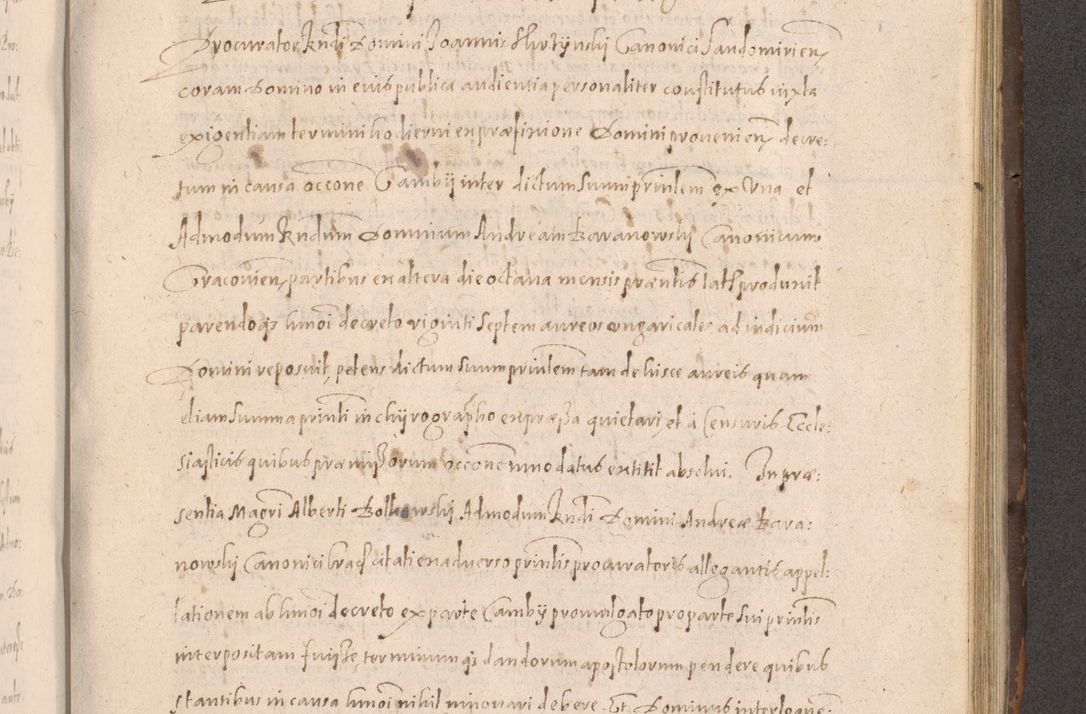 Procurator Rndi Domini Joannis Skrzÿnski Canonici Sandomirien
coram Domino in eius publica audientia personaliter constitutus iuxta
exigentiam termini hodierni ex præfinione Domini provenien decre:
tum in causa occone Cambÿ inter dictum suum prinlem ex una et
Admodum Rndum Dominum Andream Baranowski Canonicum
Cracovien partibus ex altera die octava mensis præntis lat produxit
parendoq3 hmoi decreto viginti septem aureos ungaricales ad iudicium
Domini reposuit, petens dictum suum prinlem tam de hisce aureis quam
etiam summa prinli in chyrographo expræssa quietari, et à Censuris Eccle:
siasticis quibus præmissorum occone innodatus extitit absolvi. In præ:
sentia Magri Alberti Bolkowski Admodum Rndi Domini Andreæ Bara:
nowski Canonici Crac citati ex adverso prinlis procuratoris allegantis appel:
lationem ab hmoi decreto ex parte Camby promulgato pro parte sui prinlis
interpositam fuisse, terminumq3 dandorum apostolorum pendere quibus
stantibus in causa hmoi nihil innovari debere. Et Dominus interloque: